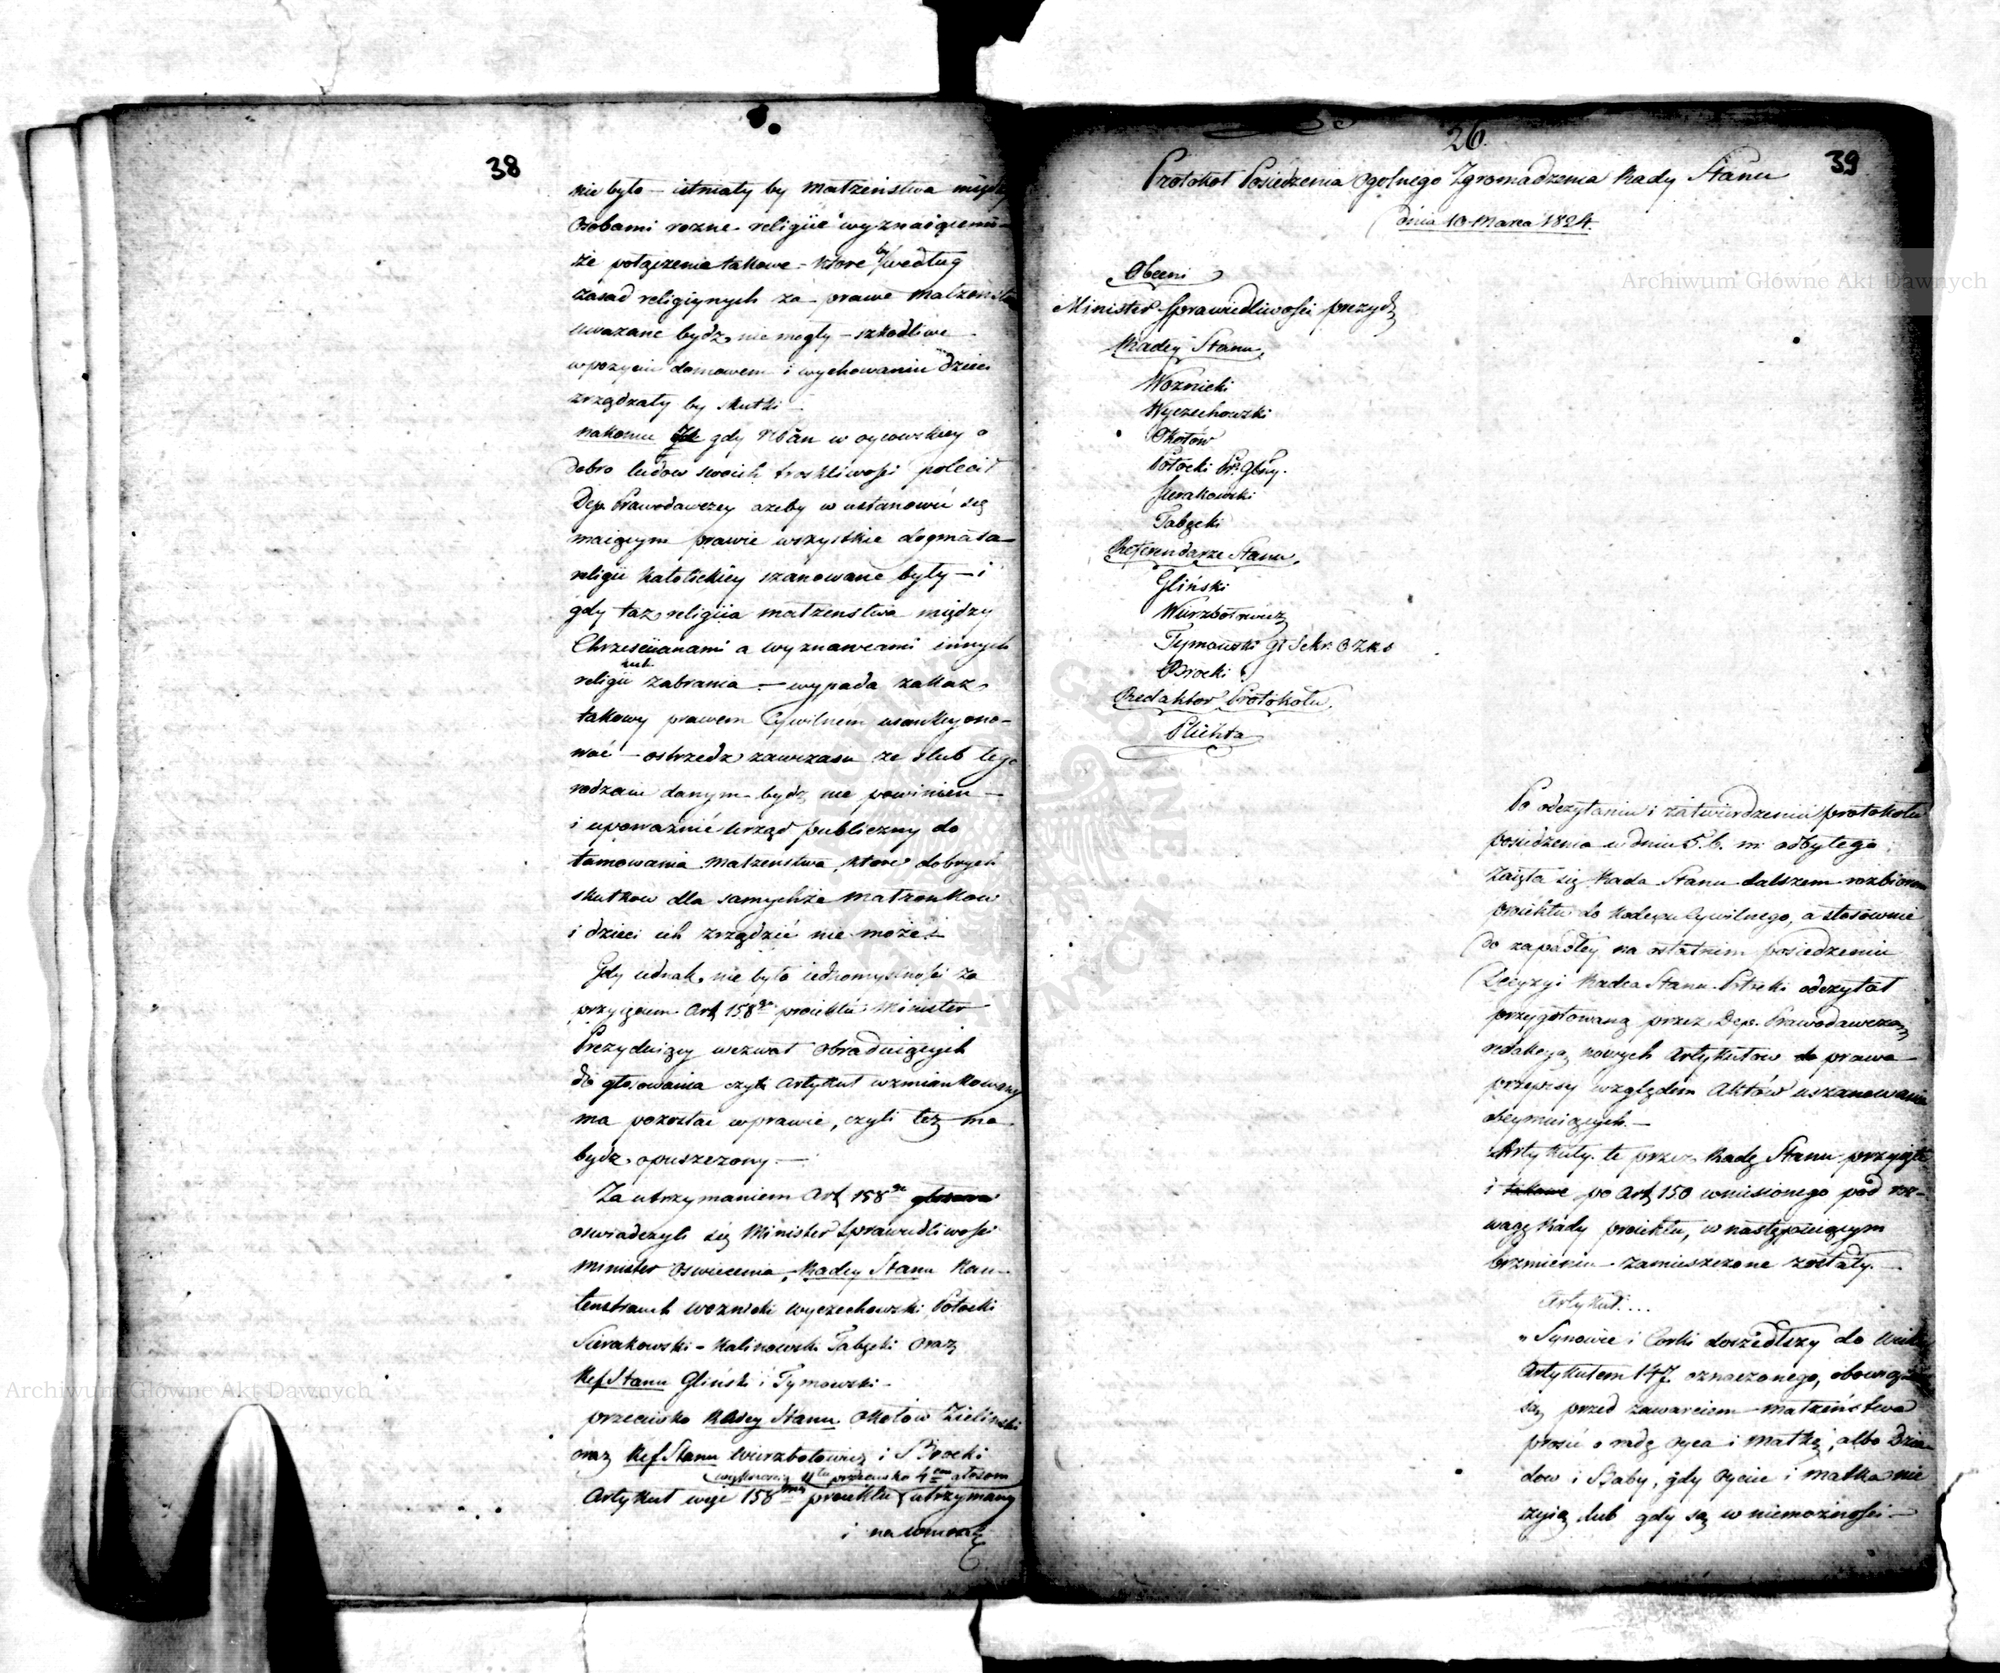 38
nie było – istniały by małżeństwa między
osobami rożne religiie wyznaiącemi –
że połączenia takowe – ktore by według
zasad religiynych za prawe małżeństwa
uważane bydz nie mogły – szkodliwe
w pożyciu domowem i wychowaniu dzieci
zrządzały by skutki –
nakoniec gdy Nŏan w oycowskiey o
dobro ludow swoich troskliwości polecił
Dep. Prawodawczey azeby w ustanowić się
maiącym prawie wszystkie dogmata
religii katolickiey szanowane były – i
gdy taz religiia małzenstwa między
Chrześciianami a wyznawcami innych
religii zabrania – wypada zakaz
takowy prawem Cywilnem usankcyono-
wać – ostrzedz zawczasu ze slub tego
rodzaiu danym bydz nie powinien –
i upoważnić urząd publiczny do
tamowania małzenstwa, ktore dobrych
skutkow dla samychże małzonkow
i dzieci ich zrządzić nie może –
Gdy iednak nie było iednomyslności za
przyięciem Art 158go proiektu Minister
Prezyduiący wezwał obraduiących
do głosowania czyli artykuł wzmiankowany
ma pozostac w prawie, czyli tez ma
bydz opuszczony. –
Za utrzymaniem Art 158go głosowa
oswiadczyli się Minister Sprawiedliwości
Minister Oswiecenia, Radcy Stanu Kau-
tenstrauch Woznicki Wyczechowski Potocki
Sierakowski – Kalinowski Tabęcki oraz
Ref Stanu Gliński i Tymowski –
przeciwko Radcy Stanu Okołow Zielinski
oraz Ref Stanu Wierzbołowicz i Brocki
większością 11tu przeciwko 4em głosom
Artykuł więc 158my proiektu utrzymany
i na wniosek
26.
39
Protokoł Posiedzenia Ogolnego Zgromadzenia Rady Stanu
dnia 10 Marca 1824.
Obecni
Minister Sprawiedliwości prezyd
Radcy Stanu,
Woznicki
Wyczechowski
Okołów
Potocki Pr. Glny.
Sierakowski
Tabęcki
Referendarze Stanu,
Gliński
Wierzbołowicz
Tymowski Z Sekr.
Brocki
Redaktor Protokołu,
Plichta
Po odczytaniu i zatwierdzeniu protokołu
posiedzenia w dniu 5. b. m. odbytego
Zaięła się Rada Stanu dalszem rozbiorem
proiektu do Kodexu Cywilnego, a stosownie
do zapadłey na ostatnim posiedzeniu
Decyzyi Radca Stanu odczytał
przygotowaną przez Dep. Prawodawczą
redakcyą nowych Artykułow do prawa
przepisy względem Aktów uszanowania
obeymuiących. –
Artykuły te przez Radę Stanu przyięte
i takowe po Art 150 wniesionego pod roz-
wagę Rady proiektu, w następuiącym
brzmieniu zamieszczone zostały. –
Artykuł....
„ Synowie i Corki doszedłszy do wieku
Artykułem 147. oznaczonego, obowiązani
są przed zawarciem małżeństwa
prosić o radę oyca i matkę, albo dzia-
dow i Baby, gdy oyciec i matka nie
żyią lub gdy są w niemożności –
Archiwum Główne Akt Dawnych
Archiwum Główne Akt Dawnych